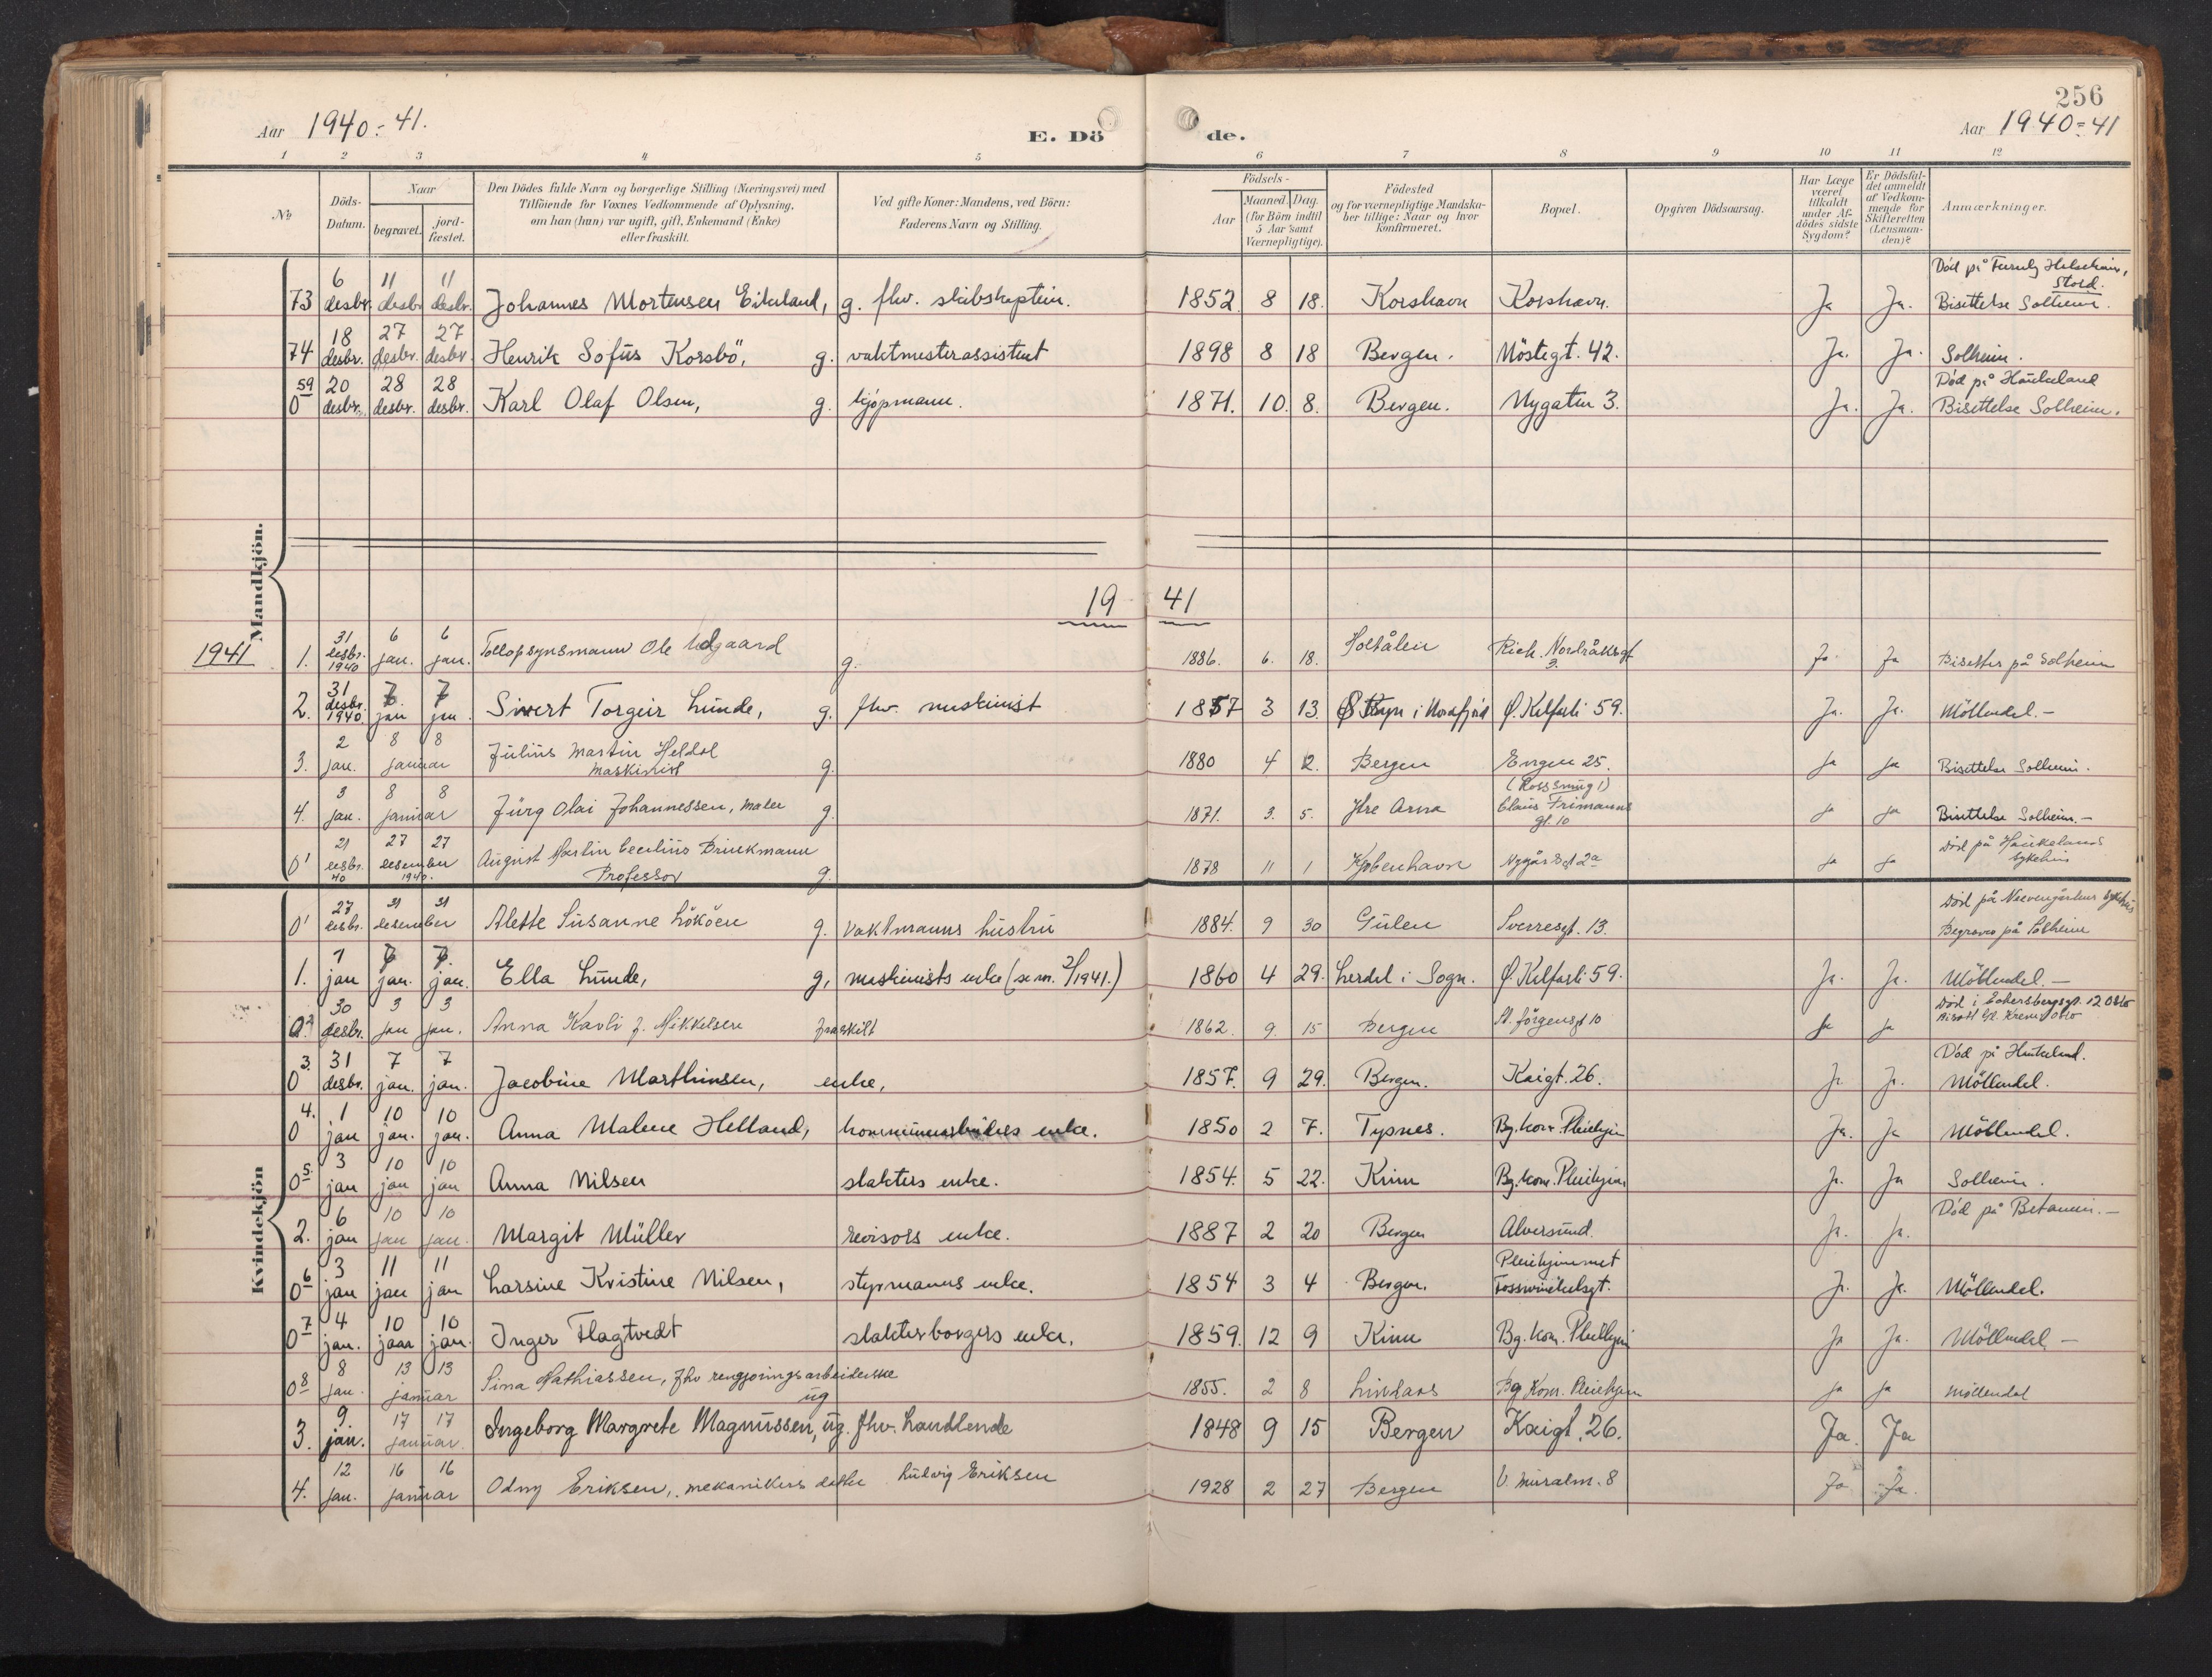 256
Aar 1940-41.
E. Döde.
Aar 1940-41
1 2 3 4 5 6 7 8 9 10 11 12
№
Döds-Datum.
Naar
begravet.
jord-fæstet.
Den Dödes fulde Navn og borgerlige Stilling (Næringsvei) med
Tilföiende for Voxnes Vedkommende af Oplysning,
om han (hun) var ugift, gift, Enkemand (Enke)
eller fraskilt.
Ved gifte Koner: Mandens, ved Börn:
Faderens Navn og Stilling.
Födsels-
Aar
Maaned. Dag.
(for Börn indtil
5 Aar samt
Værnepligtige).
Födested
og for værnepligtige Mandska-
ber tillige: Naar og hvor
konfirmeret.
Bopæl.
Opgiven Dödsaarsag.
Har Læge
været
tilkaldt
under Af-
dödes sidste
Sygdom?
Er Dödsfal-
det anmeldt
af Vedkom-
mende for
Skifteretten
(Lensman-
den)?
Anmærkninger.
Mandkjön.
73 6 desbr. 11 desbr. 11 desbr. Johannes Mortensen Eikeland, g. fhv. skibskaptein. 1852 8 18. Korshavn Korshavn. Ja Ja. Död på Stord. Bisettelse Solheim.
74 18 desbr. 27 desbr. 27 desbr. Henrik Sofus Korsbö, g. vaktmesterassistent 1898 8 18 Bergen. Nöstegt. 42. Ja. Ja. Solheim.
0 59 20 desbr. 28 desbr. 28 desbr. Karl Olaf Olsen, g. kjøpmann. 1871. 10. 8. Bergen. Nygaten 3. Ja. Ja. Död på Haukeland Bisettelse Solheim.
19 41
1941 1. 31 desbr. 1940 6 jan. 6 jan. Tollopsynsmann Ole g. 1886. 6. 18. Holtålen Rich. Nordråksgt 3. Ja Ja Bisettes på Solheim
2. 31 desbr. 1940 7 jan 7 jan. Sivert Torgeir Lunde, g. fhv. maskinist 1857 3 13. i Ø. Kalfarli 59. Ja. Ja. Möllendal.-
3. 2 jan. 8 8 januar Julius Martin Heldal maskinist g. 1880 4 12. Bergen Engen 25. Ja Ja Bisettelse Solheim.
(Rosssmug 1)
4. 3 jan. 8 8 januar Jürg Olai Johannessen, maler g. 1871. 3. 5. Ytre Arna Claus Frimanns gt. 10 Ja Ja Bisettelse Solheim.-
0 1 21 desbr. 40 27 27 desember 1940. August Martin Cecilius Brinkmann Professor g. 1878 11 1 Kjøbenhavn Nygårdsgt 2a Ja Ja Död på Haukelands sykehus
Kvindekjön
0 1 27 desbr. 31 31 desember Alette Susanne Lököen g. vaktmanns hustru 1884. 9 30 Gulen Sverresgt. 13. Död på Neevengården sykehus Begraves på Solheim
1. 1 jan 7 jan. 7. jan. Ella Lunde, g, maskinists enke (se nr. 2/1941.) 1860 4 29. Lerdal i Sogn. Ø Kalfarli 59. Ja. Ja. Möllendal.-
0 2 30 desbr. 3 jan 3 jan. Anna Kavli f. Mikkelsen fraskilt 1862. 9. 15 Bergen St. Jörgensgt 10 Ja Ja Död i Eckersbergsgt. 12 Oslo
0 3. 31 desbr. 7 jan. 7 jan. Jacobine Marthinsen, enke, 1857. 9 29. Bergen. Kaigt. 26. Ja. Ja. Död på Haukeland. Möllendal.
0 4. 1 jan 10 jan. 10 jan. Anna Malene Helland, enke. 1850 2 7. Tysnes. Bg. kom. Pleiehjem Ja. Ja Möllendal.
0 5. 3 jan 10 jan 10 jan Anna Nilsen slakters enke. 1854. 5 22. Kinn Bg. kom. Pleiehjem Ja. Ja Solheim.
2. 6 jan 10 jan 10 jan. Margit Müller revisors enke. 1887 2 20 Bergen Alversund. Ja. Ja. Död på Betanien.-
0 6 3 jan 11 jan 11 jan Larsine Kristine Nilsen, styrmanns enke. 1854 3 4 Bergen. Pleiehjemmet Fosswinckelsgt. Ja. Ja. Möllendal.
0 7 4 jan. 10 jan 10 jan. Inger Flagtvedt slakterborgers enke. 1859. 12 9 Kinn Bg. kom. Pleiehjem Ja Ja. Möllendal -
0 8 8 jan. 13 13 januar Sina Mathiassen, fhv rengjøringsarbeiderske ug 1855. 2 8 Lindaas Bg Kom. Pleiehjem Ja Ja Möllendal
3. 9. jan. 17 17 januar. Ingeborg Margrete Magnussen, ug. fhv. handlende 1848 9 15 Bergen Kaigt. 26. Ja. Ja
4. 12 jan. 16 16 januar Odny Eriksen, mekanikers datter Ludvig Eriksen 1928 2 27 Bergen V. Muralm. 8 Ja Ja.